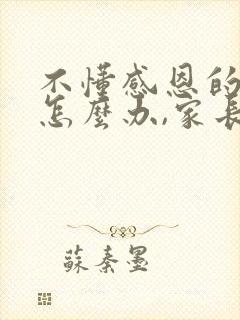 不懂感恩的
怎麼办,家长
蘇秦墨